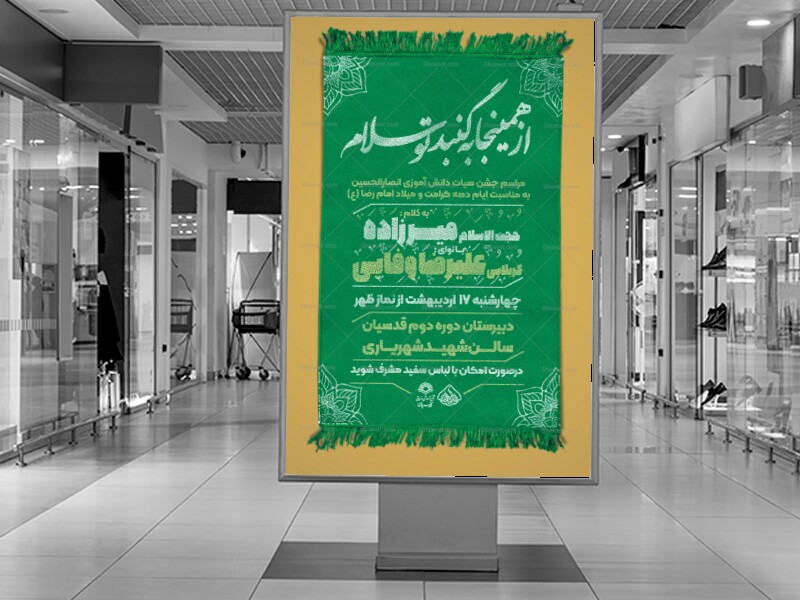 از همینجا به گنبد تو سلام
مراسم جشن هیات دانش آموزی انصارالحسین
به مناسبت ایام دهه کرامت و میلاد امام رضا (ع)
به کلام :
حجت الاسلام میرزاده
با نوای :
کربلایی علیرضا وفایی
چهارشنبه ۱۷ اردیبهشت از نماز ظهر
دبیرستان دوره دوم قدسیان
سالن شهید شهریاری
درصورت امکان با لباس سفید مشرف شوید